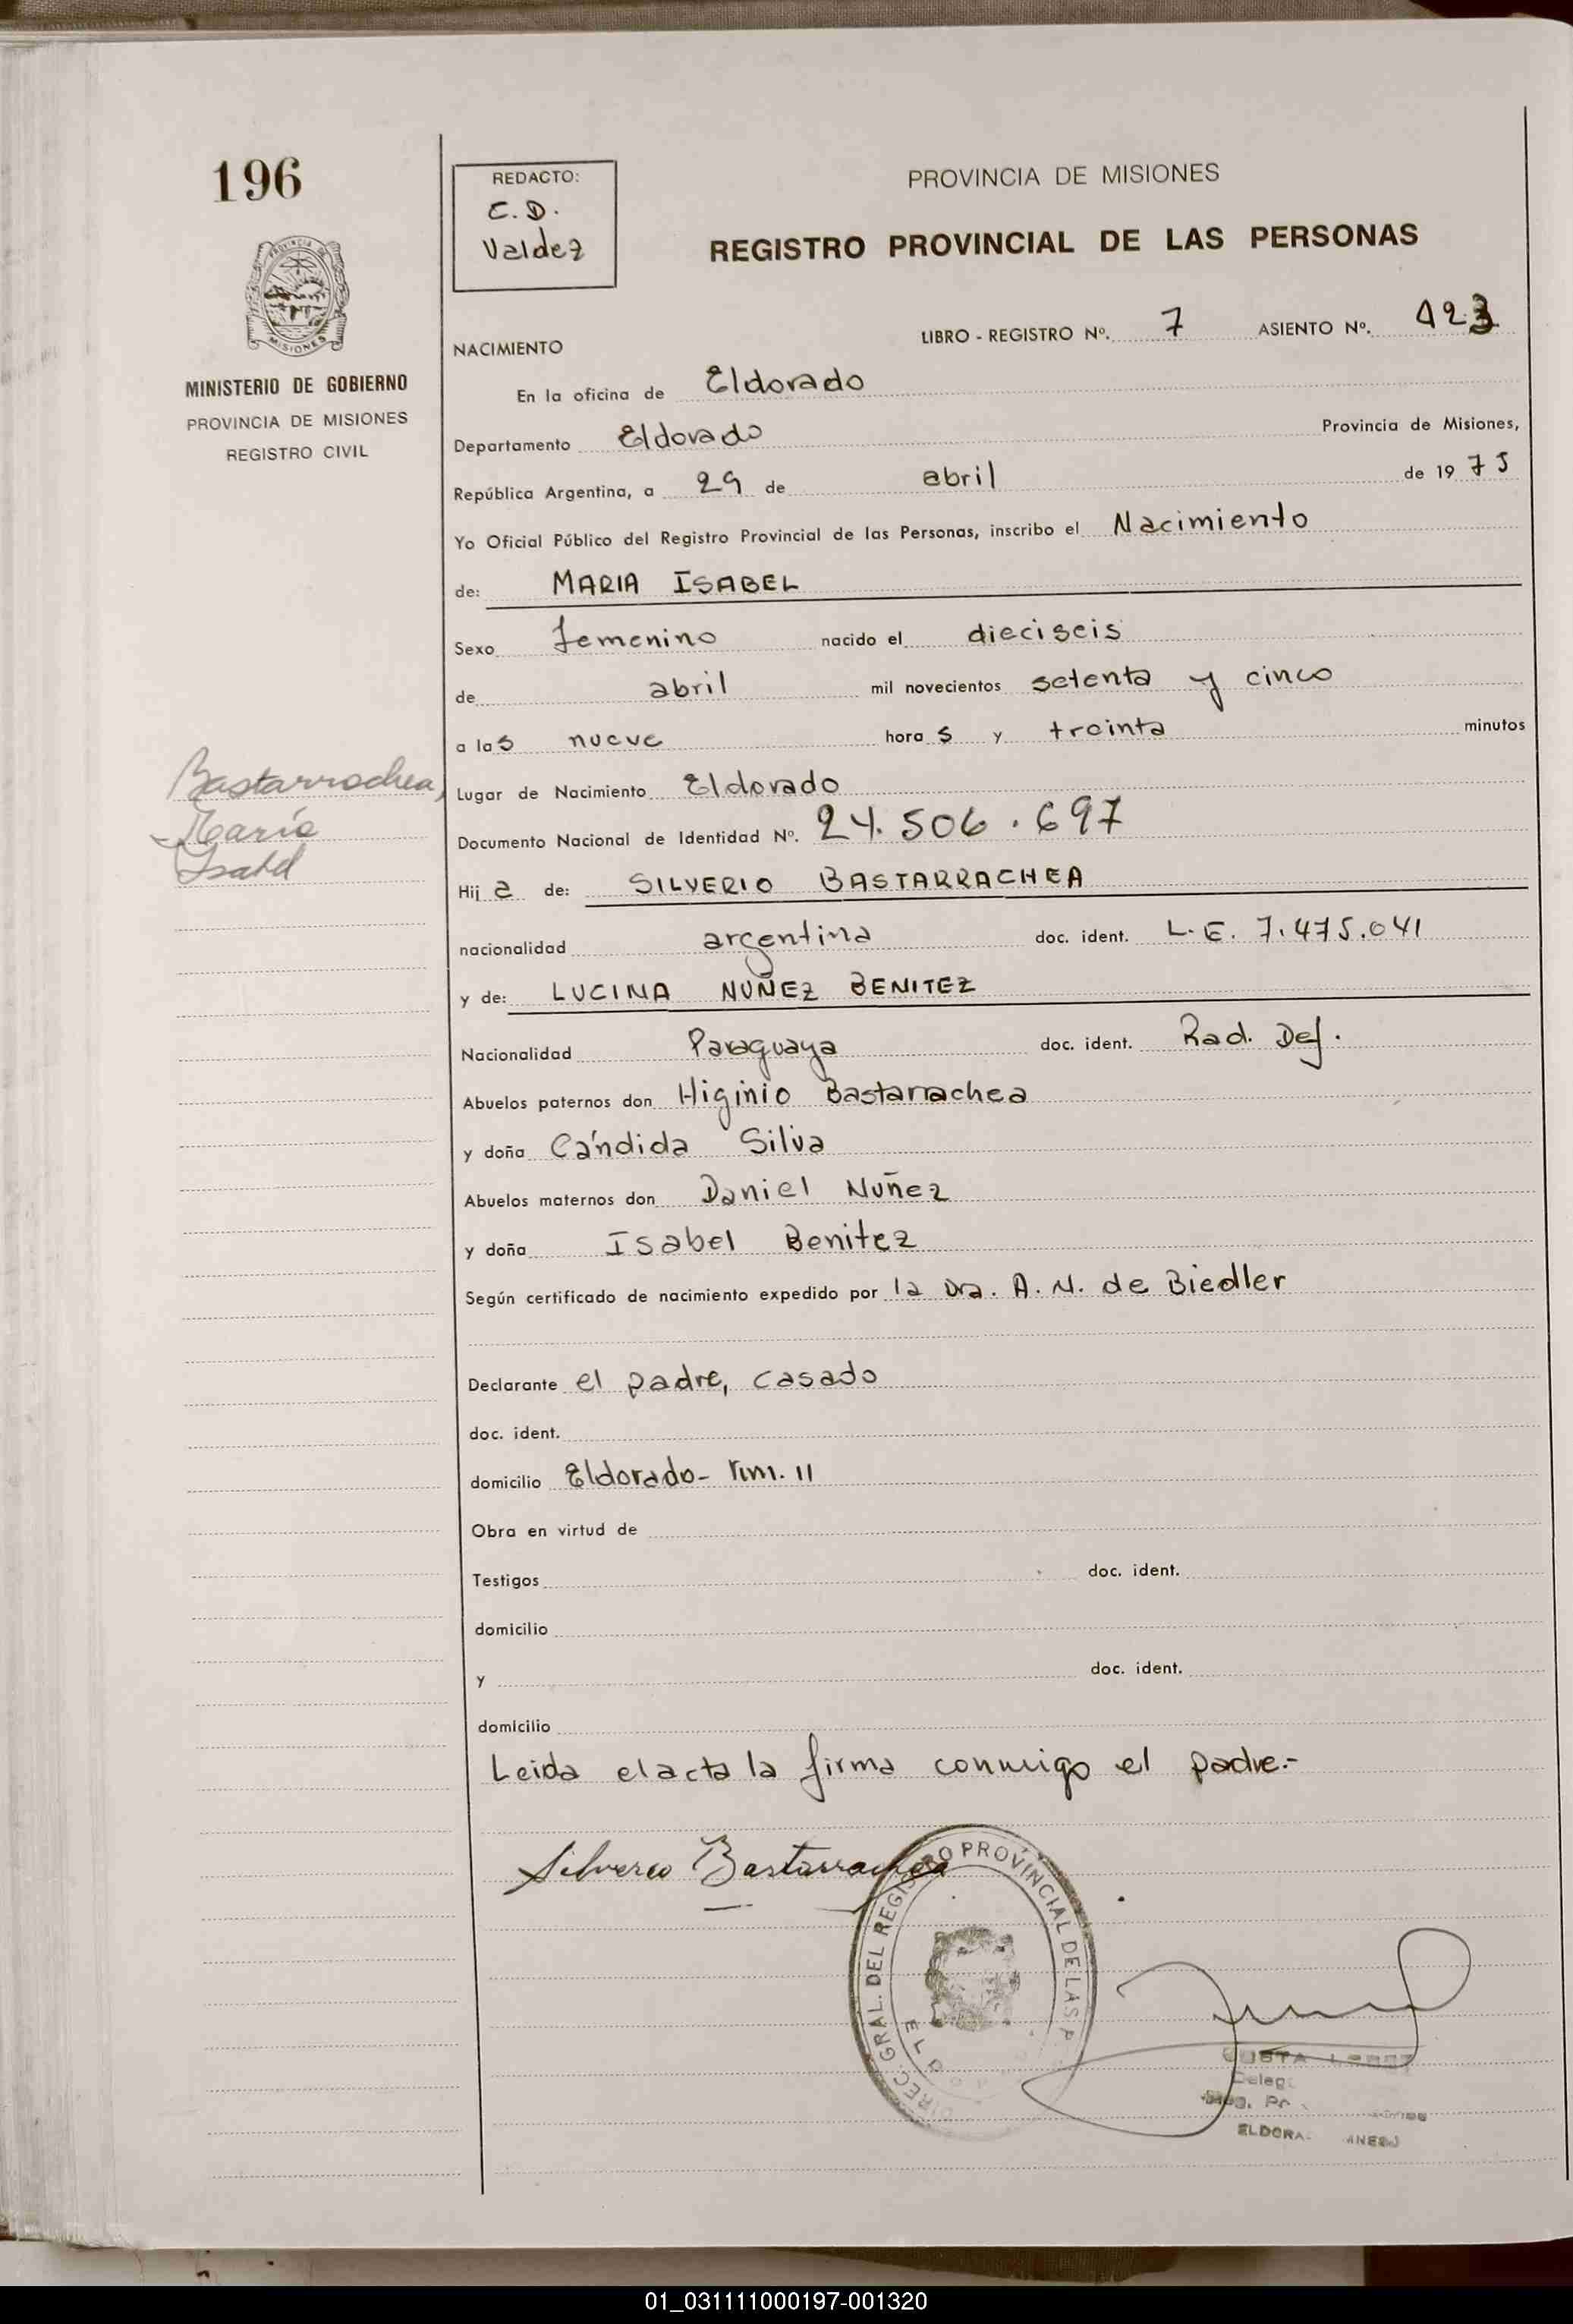 196
REDACTO:
C.D.
Valdez
PROVINCIA DE MISIONES
REGISTRO PROVINCIAL DE LAS PERSONAS
PROVINCIA DE
MISIONES
MINISTERIO DE GOBIERNO
PROVINCIA DE MISIONES
REGISTRO CIVIL
LIBRO - REGISTRO Nº. 7 ASIENTO Nº. 423
NACIMIENTO
En la oficina de Eldorado
Departamento Eldorado Provincia de Misiones,
República Argentina, a 29 de abril de 1975
Yo Oficial Público del Registro Provincial de las Personas, inscribo el Nacimiento
de: MARIA ISABEL
Sexo femenino nacido el dieciseis
de abril mil novecientos setenta y cinco
a las nueve horas y treinta minutos
Bastarrochea,
María
Isabel
Lugar de Nacimiento Eldorado
Documento Nacional de Identidad Nº. 24.506.697
Hija de: SILVERIO BASTARRACHEA
nacionalidad argentina doc. ident. L.E. 7.475.041
y de: LUCINA NUÑEZ BENITEZ
Nacionalidad Paraguaya doc. ident. Rad. Def.
Abuelos paternos don Higinio Bastarrachea
y doña Cándida Silva
Abuelos maternos don Daniel Nuñez
y doña Isabel Benitez
Según certificado de nacimiento expedido por la Dra. A. N. de Biedler
Declarante el padre, casado
doc. ident.
domicilio Eldorado- Km. 11
Obra en virtud de
Testigos doc. ident.
domicilio
y doc. ident.
domicilio
Leida el acta la firma conmigo el padre.-
Silverio Bastarrachea
DIREC. GRAL. DEL REGISTRO PROVINCIAL DE LAS P
01_031111000197-001320